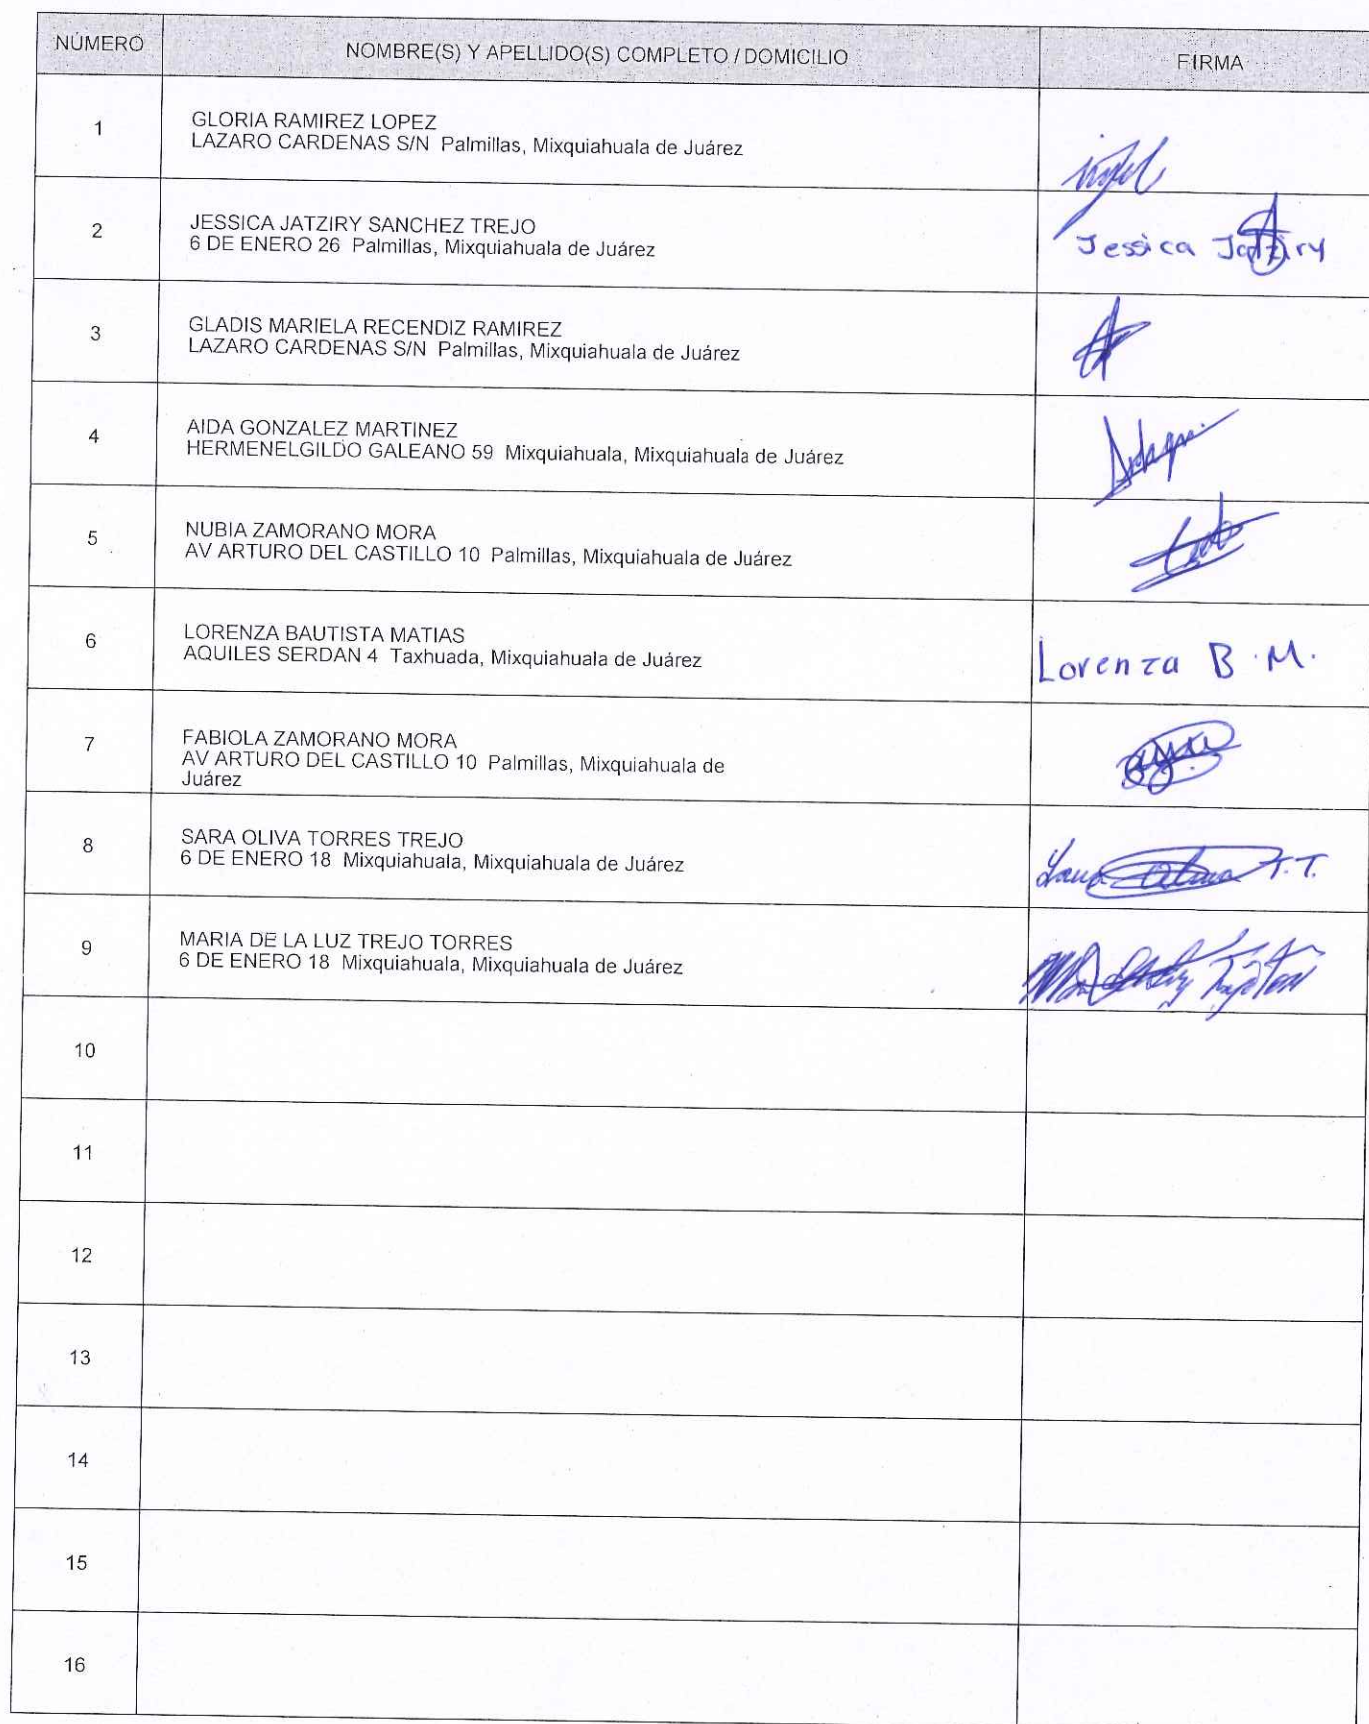 NÚMERO NOMBRE(S) Y APELLIDO(S) COMPLETO / DOMICILIO FIRMA
1 GLORIA RAMIREZ LOPEZ
LAZARO CARDENAS S/N Palmillas, Mixquiahuala de Juárez
2 JESSICA JATZIRY SANCHEZ TREJO
6 DE ENERO 26 Palmillas, Mixquiahuala de Juárez
Jessica Jatziry
3 GLADIS MARIELA RECENDIZ RAMIREZ
LAZARO CARDENAS S/N Palmillas, Mixquiahuala de Juárez
4 AIDA GONZALEZ MARTINEZ
HERMENELGILDO GALEANO 59 Mixquiahuala, Mixquiahuala de Juárez
5 NUBIA ZAMORANO MORA
AV ARTURO DEL CASTILLO 10 Palmillas, Mixquiahuala de Juárez
6 LORENZA BAUTISTA MATIAS
AQUILES SERDAN 4 Taxhuada, Mixquiahuala de Juárez
Lorenza B.M.
7 FABIOLA ZAMORANO MORA
AV ARTURO DEL CASTILLO 10 Palmillas, Mixquiahuala de
Juárez
8 SARA OLIVA TORRES TREJO
6 DE ENERO 18 Mixquiahuala, Mixquiahuala de Juárez
T.T.
9 MARIA DE LA LUZ TREJO TORRES
6 DE ENERO 18 Mixquiahuala, Mixquiahuala de Juárez
10
11
12
13
14
15
16